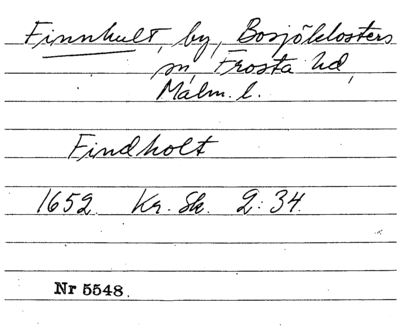 Finnhult, by, Bosjöklosters
sn, Frosta hd,
Malm. l.
Findholt
1652. Kr. Sk. 2:34.
Nr 5548.